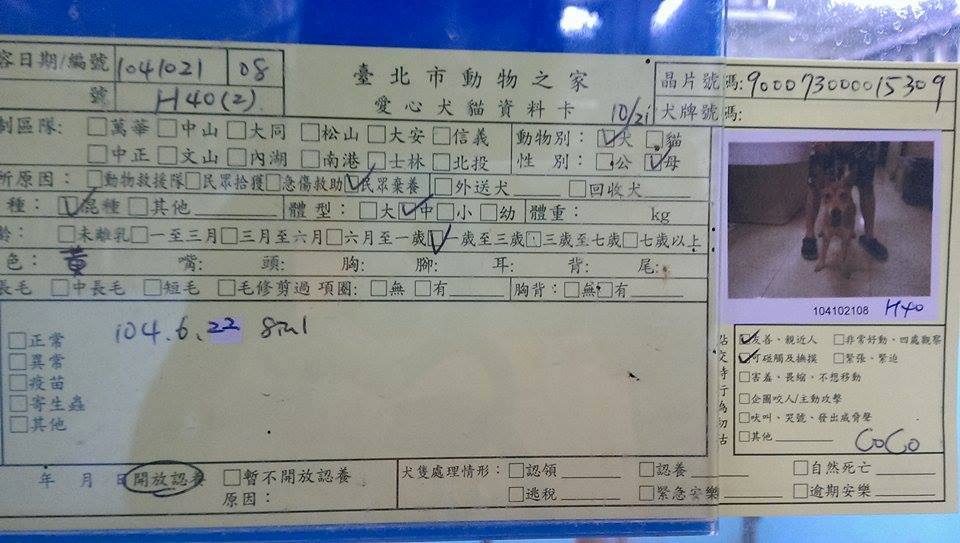 容日期/編號 1041021 08 臺北市動物之家 晶片號碼: 900073000015309
號 H40(2) 愛心犬貓資料卡 10/21 犬牌號碼:
制區隊: □萬華 □中山 □大同 □松山 □大安 □信義 動物別: ☑犬 □貓
□中正 □文山 □內湖 □南港 □士林 □北投 性別: □公 ☑母
所原因: □動物救援隊 □民眾拾獲 □急傷救助 ☑民眾棄養 □外送犬 □回收犬
種: ☑混種 □其他 體型: □大 ☑中 □小 □幼 體重: kg
齡: □未離乳 □一至三月 □三月至六月 □六月至一歲 ☑一歲至三歲 □三歲至七歲 □七歲以上
色: 黃 嘴: 頭: 胸: 腳: 耳: 背: 尾:
長毛 □中長毛 □短毛 □毛修剪過 項圈: □無 □有 胸背: □無 □有
104102108 H40
□正常 104.6.22
□異常
□疫苗
□寄生蟲
□其他
點交時行為初估
☑友善、親近人 □非常好動、四處觀察
☑可碰觸及撫摸 □緊張、緊迫
□害羞、畏縮、不想移動
□企圖咬人/主動攻擊
□吠叫、哭號、發出威脅聲
□其他 CoCo
年 月 日 開放認養 □暫不開放認養 犬隻處理情形: □認領 □認養 □自然死亡
原因: □逃稅 □緊急安樂 □逾期安樂